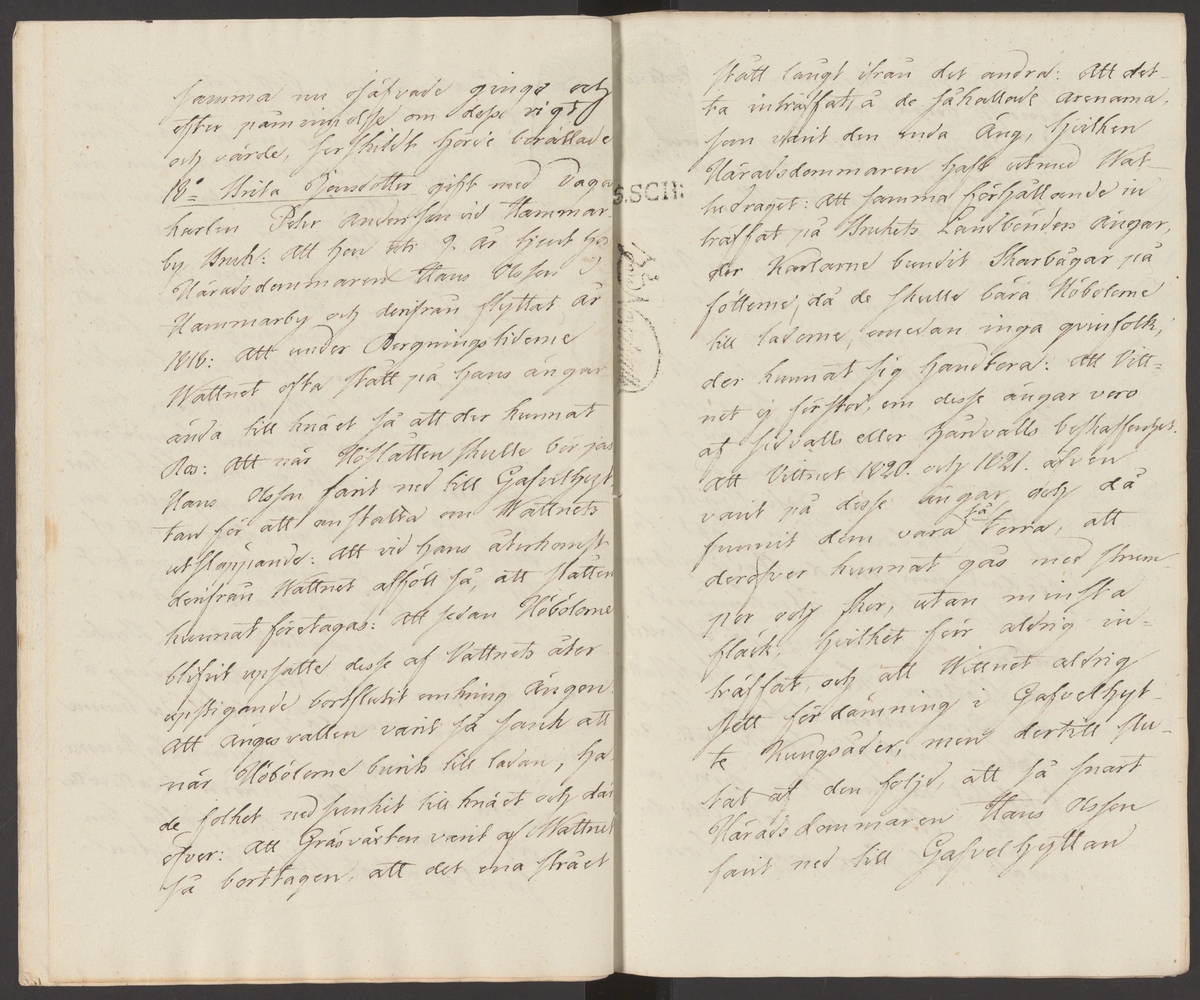 samma nu ojäfvade ginge och
efter påminnelse om dess vigt
och värde, serskildt hörde berättade
18:o Brita Jönsdotter gift med Daga
karlen Pehr Andersson vid Hammar-
by Bruk: Att hon uti 9. år tjent hos
Häradsdommaren Hans Olsson i
Hammarby och derifrån flyttat år
1818: Att under Bergningstiderne
Wattnet ofta stått på hans ängar
ända till knäet så att der kunnat
Ros: Att när Höslåtten skulle börjas
Hans Olsson farit ned till Gafvelhyt
tan för att anstalta om Wattnets
utsläppande: Att vid hans återkomst
derifrån Wattnet affóll så, att slåtten
kunnat företagas: Att sedan Höbölorne
blifvit upsatte desse af Vattnets åter
upstigande bortflutit omkring Ängen:
Att ängesvallen varit så sank att
när Höbölorne burits till ladan, ha-
de folket nedsunkit till knäet och där
öfver: Att Gräsväxten varit af Wattnet
så borttagen, att det ena strået
stått långt ifrån det andra: Att det-
ta inträffat å de så kallade Arenama,
som varit den enda Äng, hvilken
Häradsdommaren haft utmed Wat-
tudraget: Att samma förhållande in
träffat på Brukets Landbönders ängar,
der Karlarne bundit Skarbågar på
fötterne, då de skulle bära Höbölorne
till laderne, emedan inga qvinfolk,
der kunnat sig handtera: Att Vitt-
net ej förstod, om desse ängar voro
af sidvalls eller hårdvalls beskaffenhet.
Att Vittnet 1820. och 1821. äfven
varit på desse ängar och då
funnit dem vara så torra, att
deröfver kunnat gås med strum-
por och skor, utan minsta
fläck, hvilket förr aldrig in-
träffat, och att Wittnet aldrig
sett fördämning i Gafvelhyt-
te Kungsåder, men dertill slu-
tat af den följd, att så snart
Häradsdommaren Hans Olsson
farit ned till Gafvelhyttan
S.SCH: